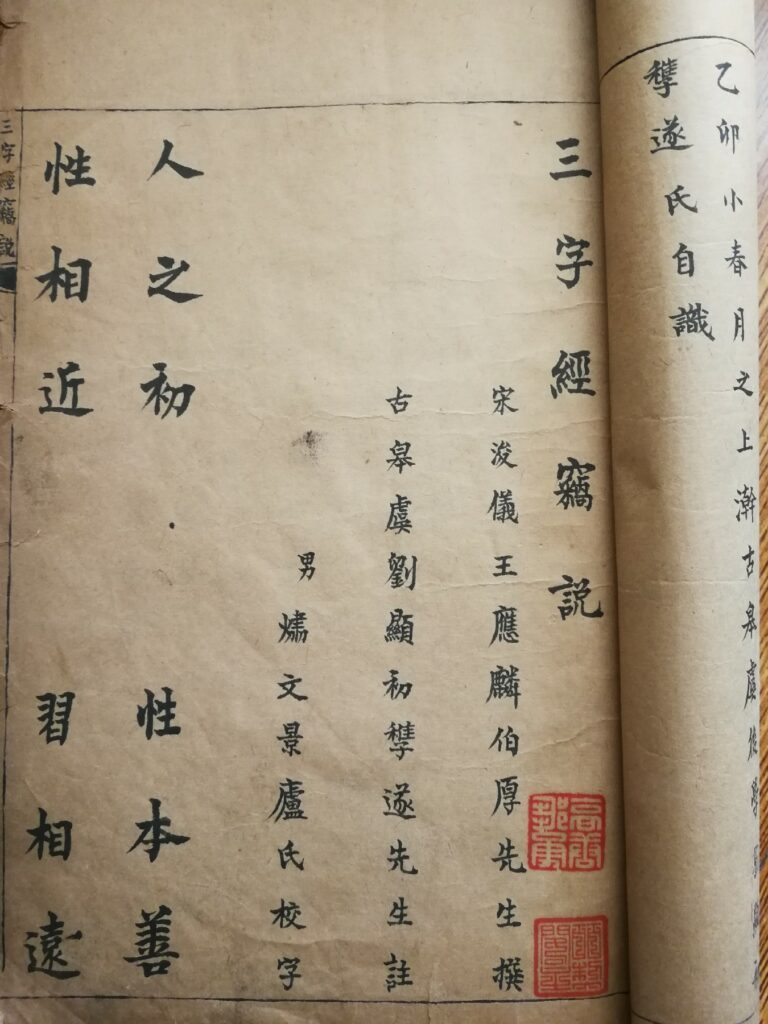 乙卯小春月之上澣古皋虞
遂氏自識
三字經竊説
宋浚儀王應麟伯厚先生撰
古皋虞劉顯初遂先生註
男爌文景廬氏校字
人之初 性本善
性相近 習相遠
三字經竊説